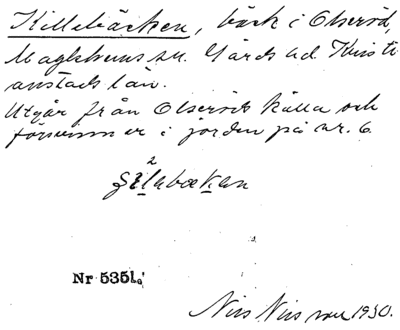 Killebäcken, bäck i Olseröd,
Maglehems sn. Gärds hd. Kristi-
anstads län.
Utgår från Olseröds källa och
försvinner i jorden på nr. 6.
Nr 5351
Nils Nilsson 1930.